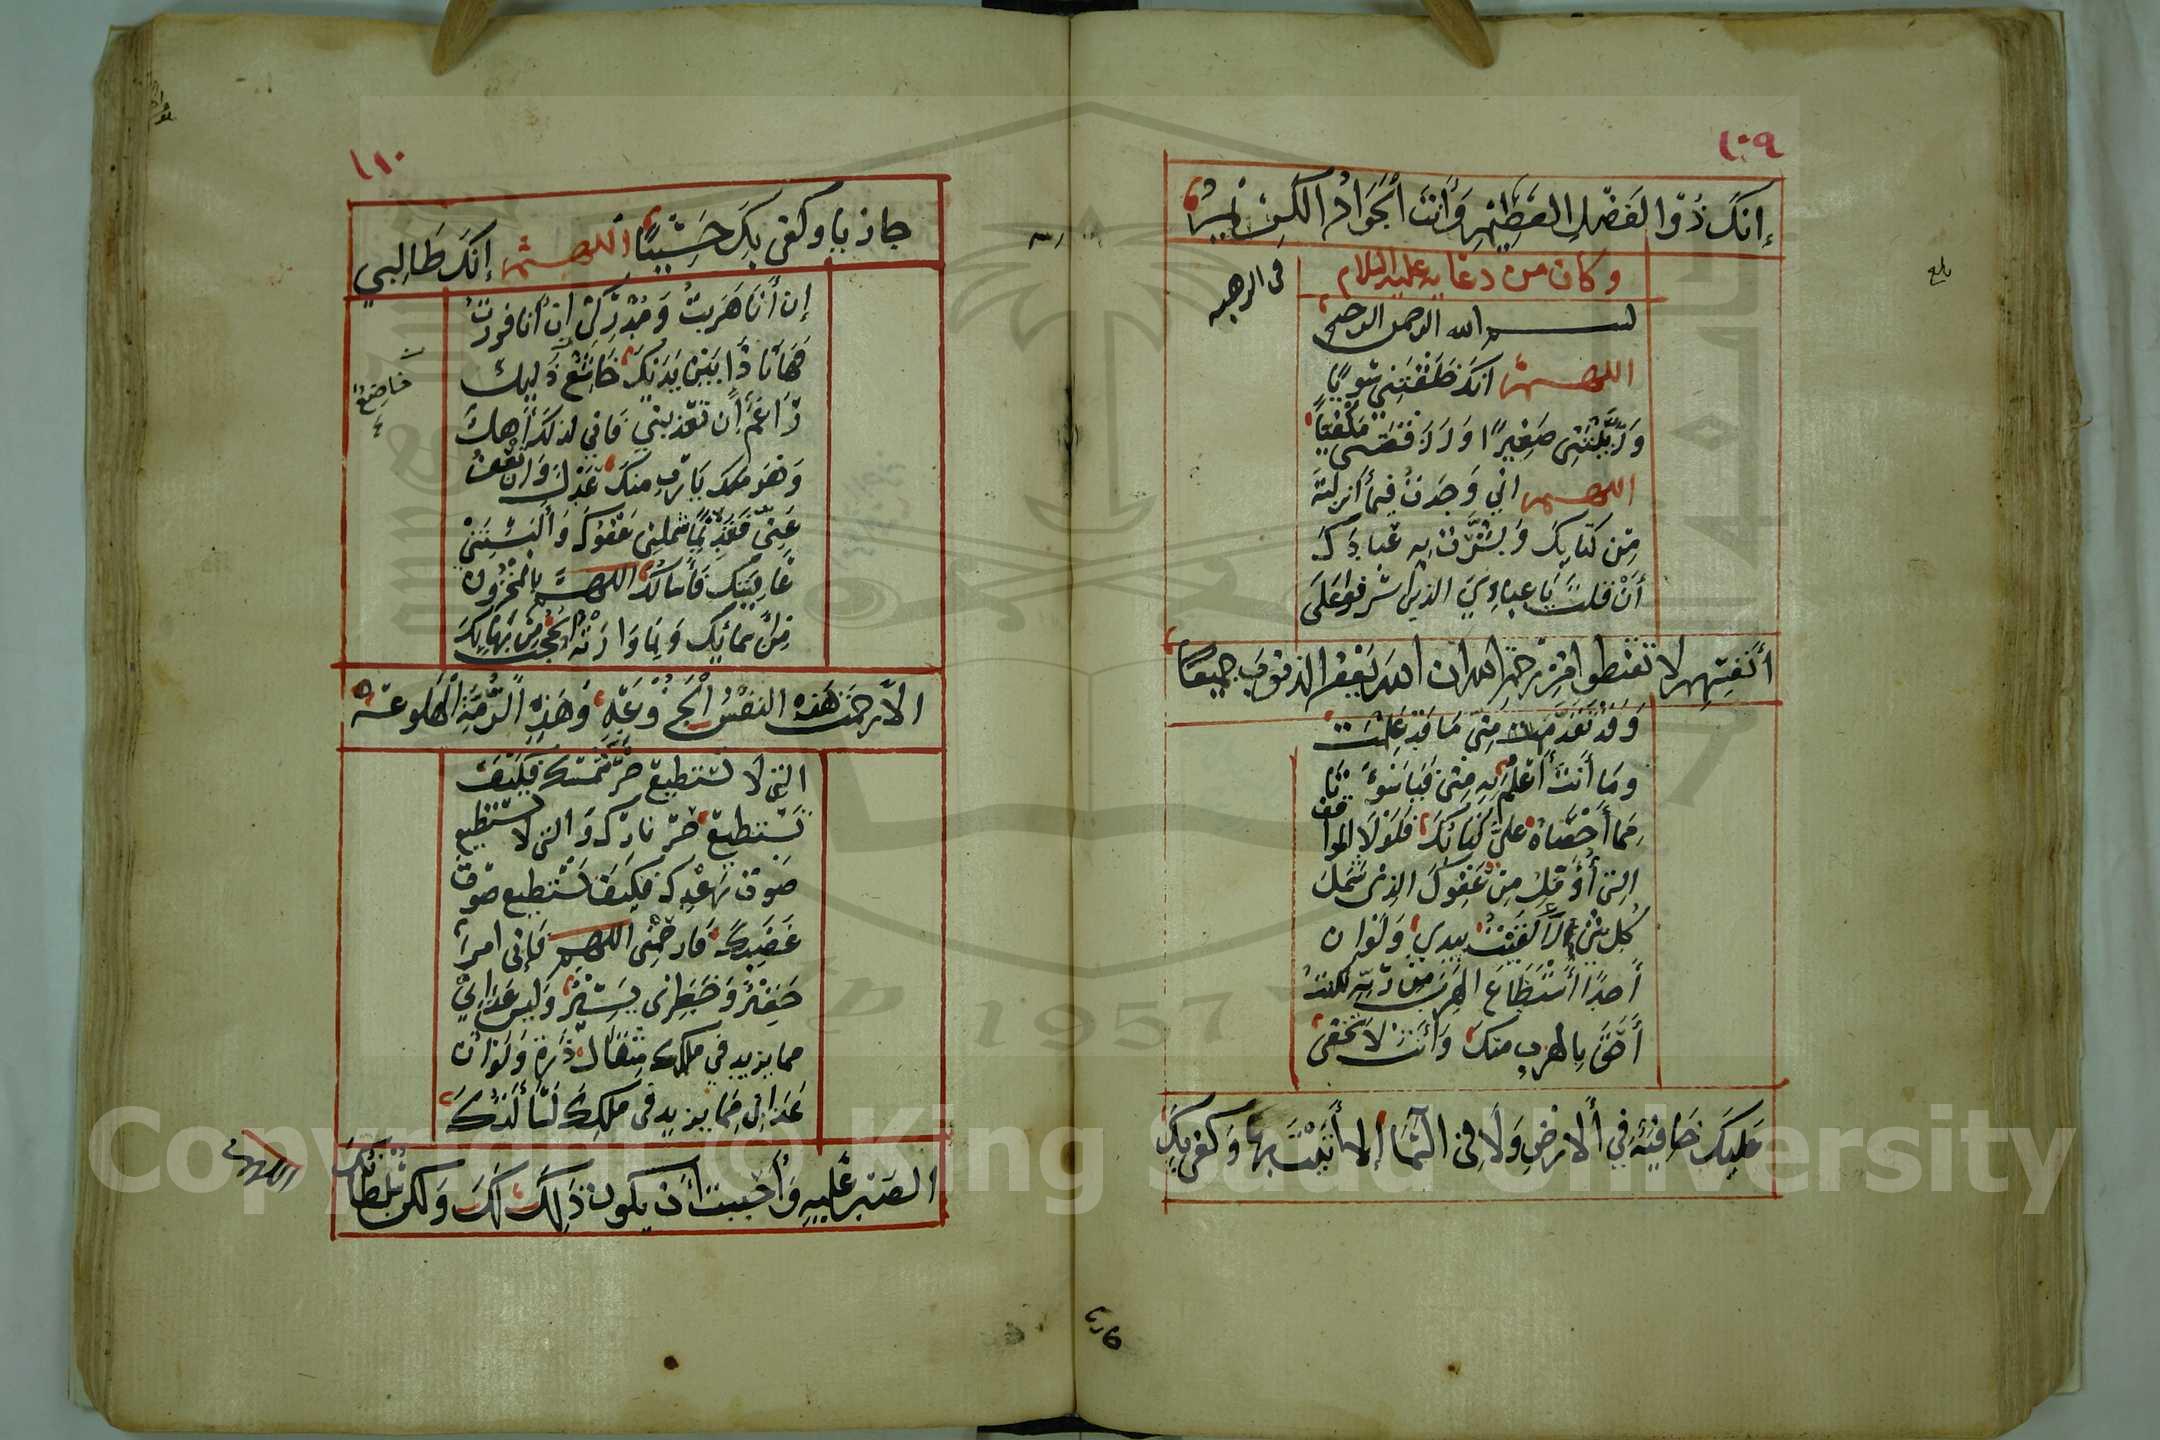 ١٠٩
إنك ذو الفضل العظيم وأنت الجواد الكريم
وكان من دعايه عليه السلام
في الرهبه
بسم الله الرحمن الرحيم
اللهم انك خلقتني سويا
وربيتني صغيرا ورزقتني مكفيا
اللهم اني وجدت فيما أنزلت
من كتابك وبشرت به عبادك
أن قلت يا عبادي الذين اسرفوا على
أنفسهم لا تقنطوا من رحمة الله ان الله يغفر الذنوب جميعا
وقد تقدم مني ما قد علمت
وما أنت أعلم به مني فيا سوءتا
مما أحصاه علي كتابك فلولا المواقف
التي أؤمل من عفوك الذي شمل
كل شيء لألقيت بيدي ولو ان
أحدا استطاع الهرب من ربه لكنت
أحق بالهرب منك وأنت لا تخفى
عليك خافية في الارض ولا في السما إلا أتيت بها وكفى بك
بلغ
١١٠
جازيا وكفى بك حسيبا اللهم إنك طالبي
إن أنا هربت ومدركي إن أنا فررت
فها أنا ذا بين يديك خاشع ذليل
خاضع
راغم إن تعذبني فاني لذلك أهل
وهو منك يا رب منك عدل وان تعف
عني فقديما شملني عفوك وألبستني
عافيتك فأسالك اللهم بالمخزون
من اسمائك وبما وارته الحجب من بهائك
الا رحمت هذه النفس الجزوعه وهذه الرمة الهلوعة
التي لا تستطيع حر شمسك فكيف
تستطيع حر نارك والتي لا تستطيع
صوت رعدك فكيف تستطيع صوت
غضبك فارحمني اللهم فإني امرأ
حقير وخطري يسير وليس عذابي
مما يزيد في ملكك مثقال ذرة ولو ان
عذابي مما يزيد في ملكك لسألتك
الصبر عليه وأحببت أن يكون ذلك لك ولكن سلطانك
اللهم
King Saud University
1957
Copyright © King Saud University